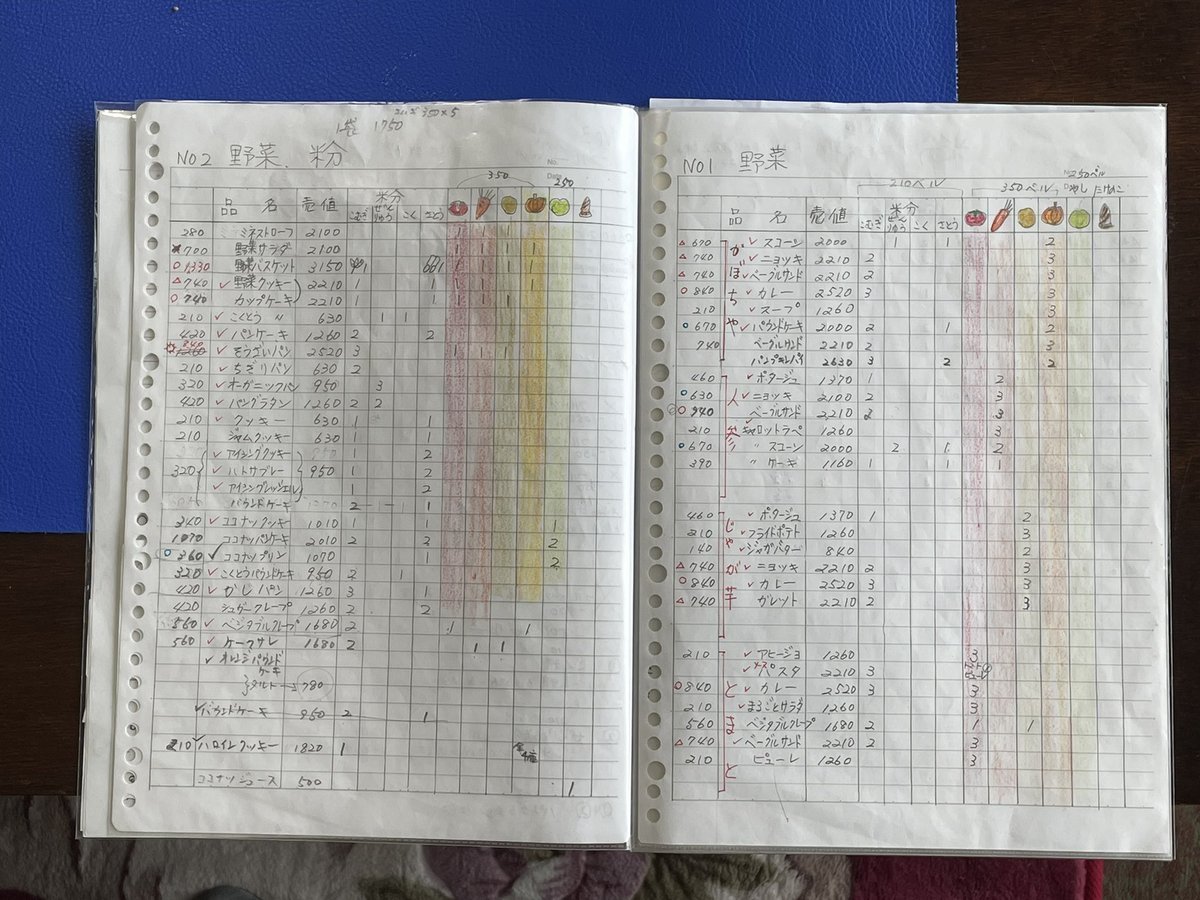 1袋 1750
350×5
No2 野菜. 粉
350
250
品名 売値 こむぎ 米分 ぜんりゅう こく さとう
280 ミネストローフ 2100 1 1 1 1
700 野菜サラダ 2100 1 1 1
1330 野菜バスケット 3150 1 1 1 1
△740 ✓野菜クッキー 2210 1 1 1 1 1
○740 カップケーキ 2210 1 1 1 1 1
210 ✓こくとう 〃 630 1 1
420 ✓パンケーキ 1260 2 2
840 ✓そうざいパン 2520 3 1 1 1
210 ✓ちぎりパン 630 2
320 ✓オーガニックパン 950 3
420 ✓パングラタン 1260 2 2
210 ✓クッキー 630 1 1
210 ジャムクッキー 630 1 1
✓アイシングクッキー 1 2
320 ✓ハトサブレー 950 1 2
✓アイシングプレッツェル 1 2
パウンドケーキ 2 1
340 ✓ココナツクッキー 1010 1 1 1
1070 ココナツパンケーキ 2010 2 2 2
360 ✓ココナツプリン 1090 1 2
320 ✓こくとうパウンドケーキ 950 2 1
420 ✓かしパン 1260 3 1
420 シュガークレープ 1260 2 2
560 ✓ベジタブルクレープ 1680 2 1 1
560 ✓ケークサレ 1680 2 1 1
✓オレンジパウンドケーキ
タルト→780
✓パウンドケーキ 950 2 1
210 ✓ハロインクッキー 1820 1
ココナツジュース 500 1
No1 野菜
210ベル
350ベル
250ベル
やし たけのこ
品名 売値 こむぎ 米分 ぜんりゅう こく さとう
かぼちゃ
△670 ✓スコーン 2000 1 1 2
△740 ✓ニョッキ 2210 2 3
△740 ✓ベーグルサンド 2210 2 3
○840 ✓カレー 2520 3 3
210 ✓スープ 1260 3
○670 ✓パウンドケーキ 2000 2 1 2
740 ベーグルサンド 2210 2 3
パンプキンパイ 2630 3 2 2
人参
460 ✓ポタージュ 1370 1 2
○630 ✓ニョッキ 2100 2 3
○740 ✓ベーグルサンド 2210 2 3
210 キャロットラペ 1260 3
○670 〃 スコーン 2000 2 1 2
390 〃 ケーキ 1160 1 1 1
じゃが芋
460 ✓ポタージュ 1370 1 2
210 ✓フライドポテト 1260 3
140 ✓ジャガバター 840 2
△740 ✓ニョッキ 2210 2 3
○840 ✓カレー 2520 3 3
△740 ガレット 2210 2 3
とまと
210 ✓アヒージョ 1260 3
✓パスタ 2210 3
○840 ✓カレー 2520 3 3
210 ✓まるごとサラダ 1260 3
560 ベジタブルクレープ 1680 2 1 1
△740 ✓ベーグルサンド 2210 2 3
210 ピューレ 1260 3